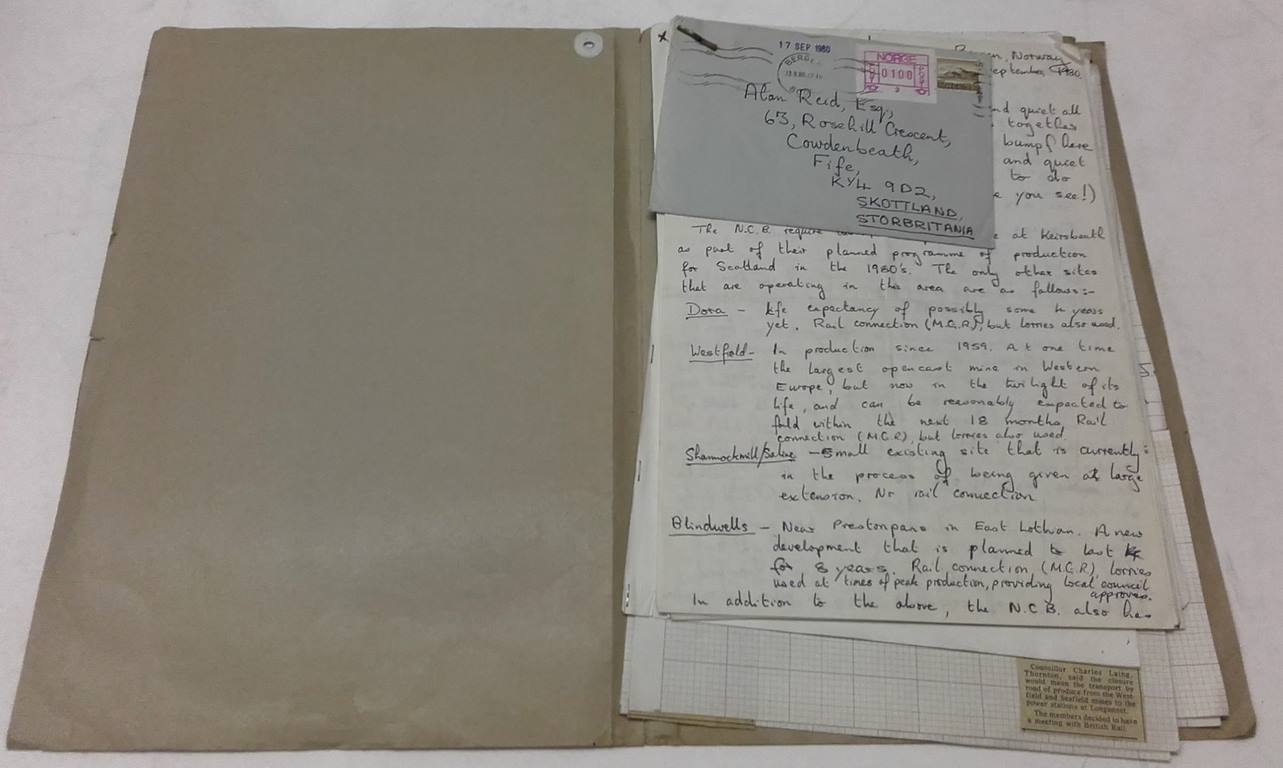 17 SEP 1980
BERGEN
NORGE
0100
Alan Reid, Esq,
63, Rosehill Crescent,
Cowdenbeath,
Fife,
KY4 9DZ,
SKOTTLAND,
STORBRITANIA
x
Bergen, Norway
September, 1980.
and quiet all
together
bumpf here
and quiet
to do
you see!)
The N.C.B. require at Keirsbeath
as part of their planned programme of production
for Scotland in the 1980's. The only other sites
that are operating in this area are as follows:-
Dora - life expectancy of possibly some 4 years
yet. Rail connection (M.G.R), but lorries also used.
Westfield - In production since 1959. At one time
the largest opencast mine in Western
Europe, but now in the twilight of its
life, and can be reasonably expected to
fold within the next 18 months. Rail
connection (M.G.R), but lorries also used.
Shannockmill/Saline - Small existing site that is currently
in the process of being given a large
extension. No rail connection
Blindwells - Near Prestonpans in East Lothian. A new
development that is planned to last
for 8 years. Rail connection, (M.G.R), lorries
used at times of peak production, providing local council
approves.
In addition to the above, the N.C.B. also has
Councillor Charles Laing,
Thornton, said the closure
would mean the transport by
road of produce from the West-
field and Seafield mines to the
power stations at Longannet.
The members decided to have
a meeting with British Rail.